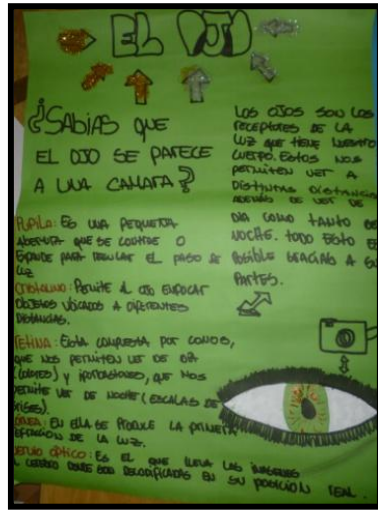 EL OJO
¿SABÍAS QUE
EL OJO SE PARECE
A UNA CAMARA?
LOS OJOS SON LOS
RECEPTORES DE LA
LUZ QUE TIENE NUESTRO
CUERPO. ESTOS NOS
PERMITEN VER A
DISTINTAS DISTANCIAS
ADEMÁS DE VER DE
DIA COMO TANTO DE
NOCHE. TODO ESTO ES
POSIBLE GRACIAS A SUS
PARTES.
PUPILA: ES UNA PEQUEÑA
ABERTURA QUE SE CONTRAE O
EXPANDE PARA REGULAR EL PASO DE
LUZ
CRISTALINO: PERMITE AL OJO ENFOCAR
OBJETOS UBICADOS A DIFERENTES
DISTANCIAS.
RETINA: ESTA COMPUESTA POR CONOS,
QUE NOS PERMITEN VER DE DÍA
(COLORES) Y BASTONES, QUE NOS
PERMITE VER DE NOCHE (ESCALAS DE
GRISES).
CORNEA: EN ELLA SE PRODUCE LA PRIMERA
REFRACCIÓN DE LA LUZ.
NERVIO ÓPTICO: ES EL QUE LLEVA LAS IMÁGENES
AL CEREBRO DONDE SON DECODIFICADAS EN SU POSICIÓN REAL.